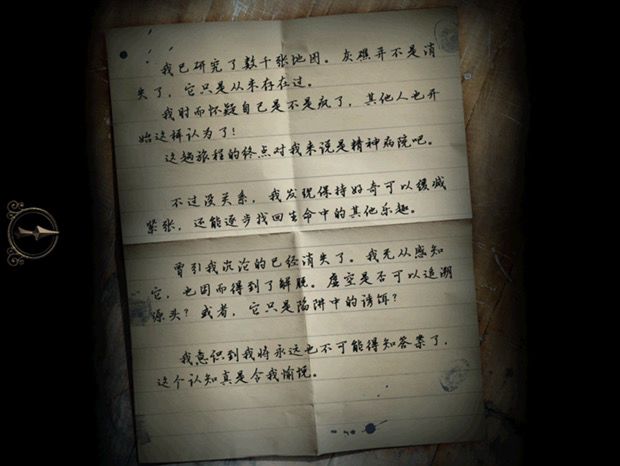 我已研究了数千张地图。灰礁并不是消
失了,它只是从未存在过。
我时而怀疑自己是不是疯了,其他人也开
始这样认为了!
这趟旅程的终点对我来说是精神病院吧。
不过没关系,我发现保持好奇可以缓减
紧张,还能逐步找回生命中的其他乐趣。
曾引我沉沦的已经消失了。我无从感知
它,也因而得到了解脱。虚空是否可以追溯
源头?或者,它只是陷阱中的诱饵?
我意识到我将永远也不可能得知答案了,
这个认知真是令我愉悦。